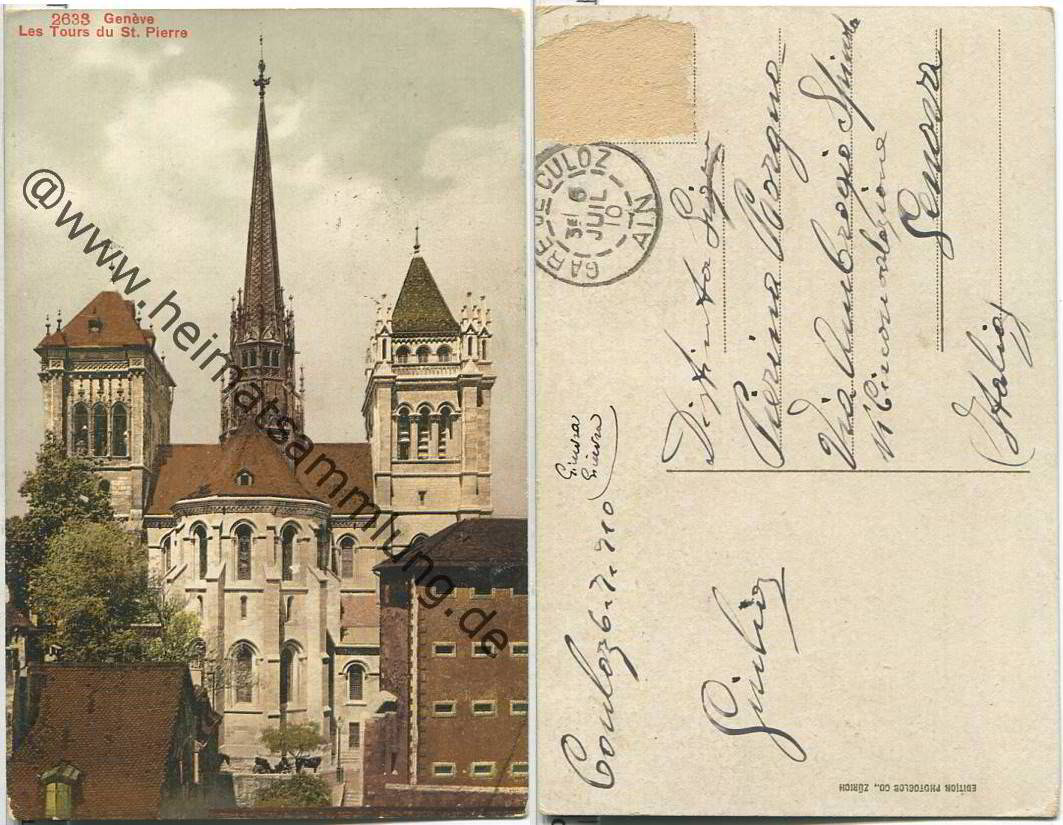 2633 Genève
Les Tours du St. Pierre
@www.heimatsammlung.de
GARE DE CULOZ
3E 6
JUIL
10
AIN
Distinta
Pierina
Via Ambrogio Spinola
N
Circonvalazione
Genova
(Italia)
Ginevra
Ginevra
Giulia
EDITION PHOTOGLOB CO., ZÜRICH